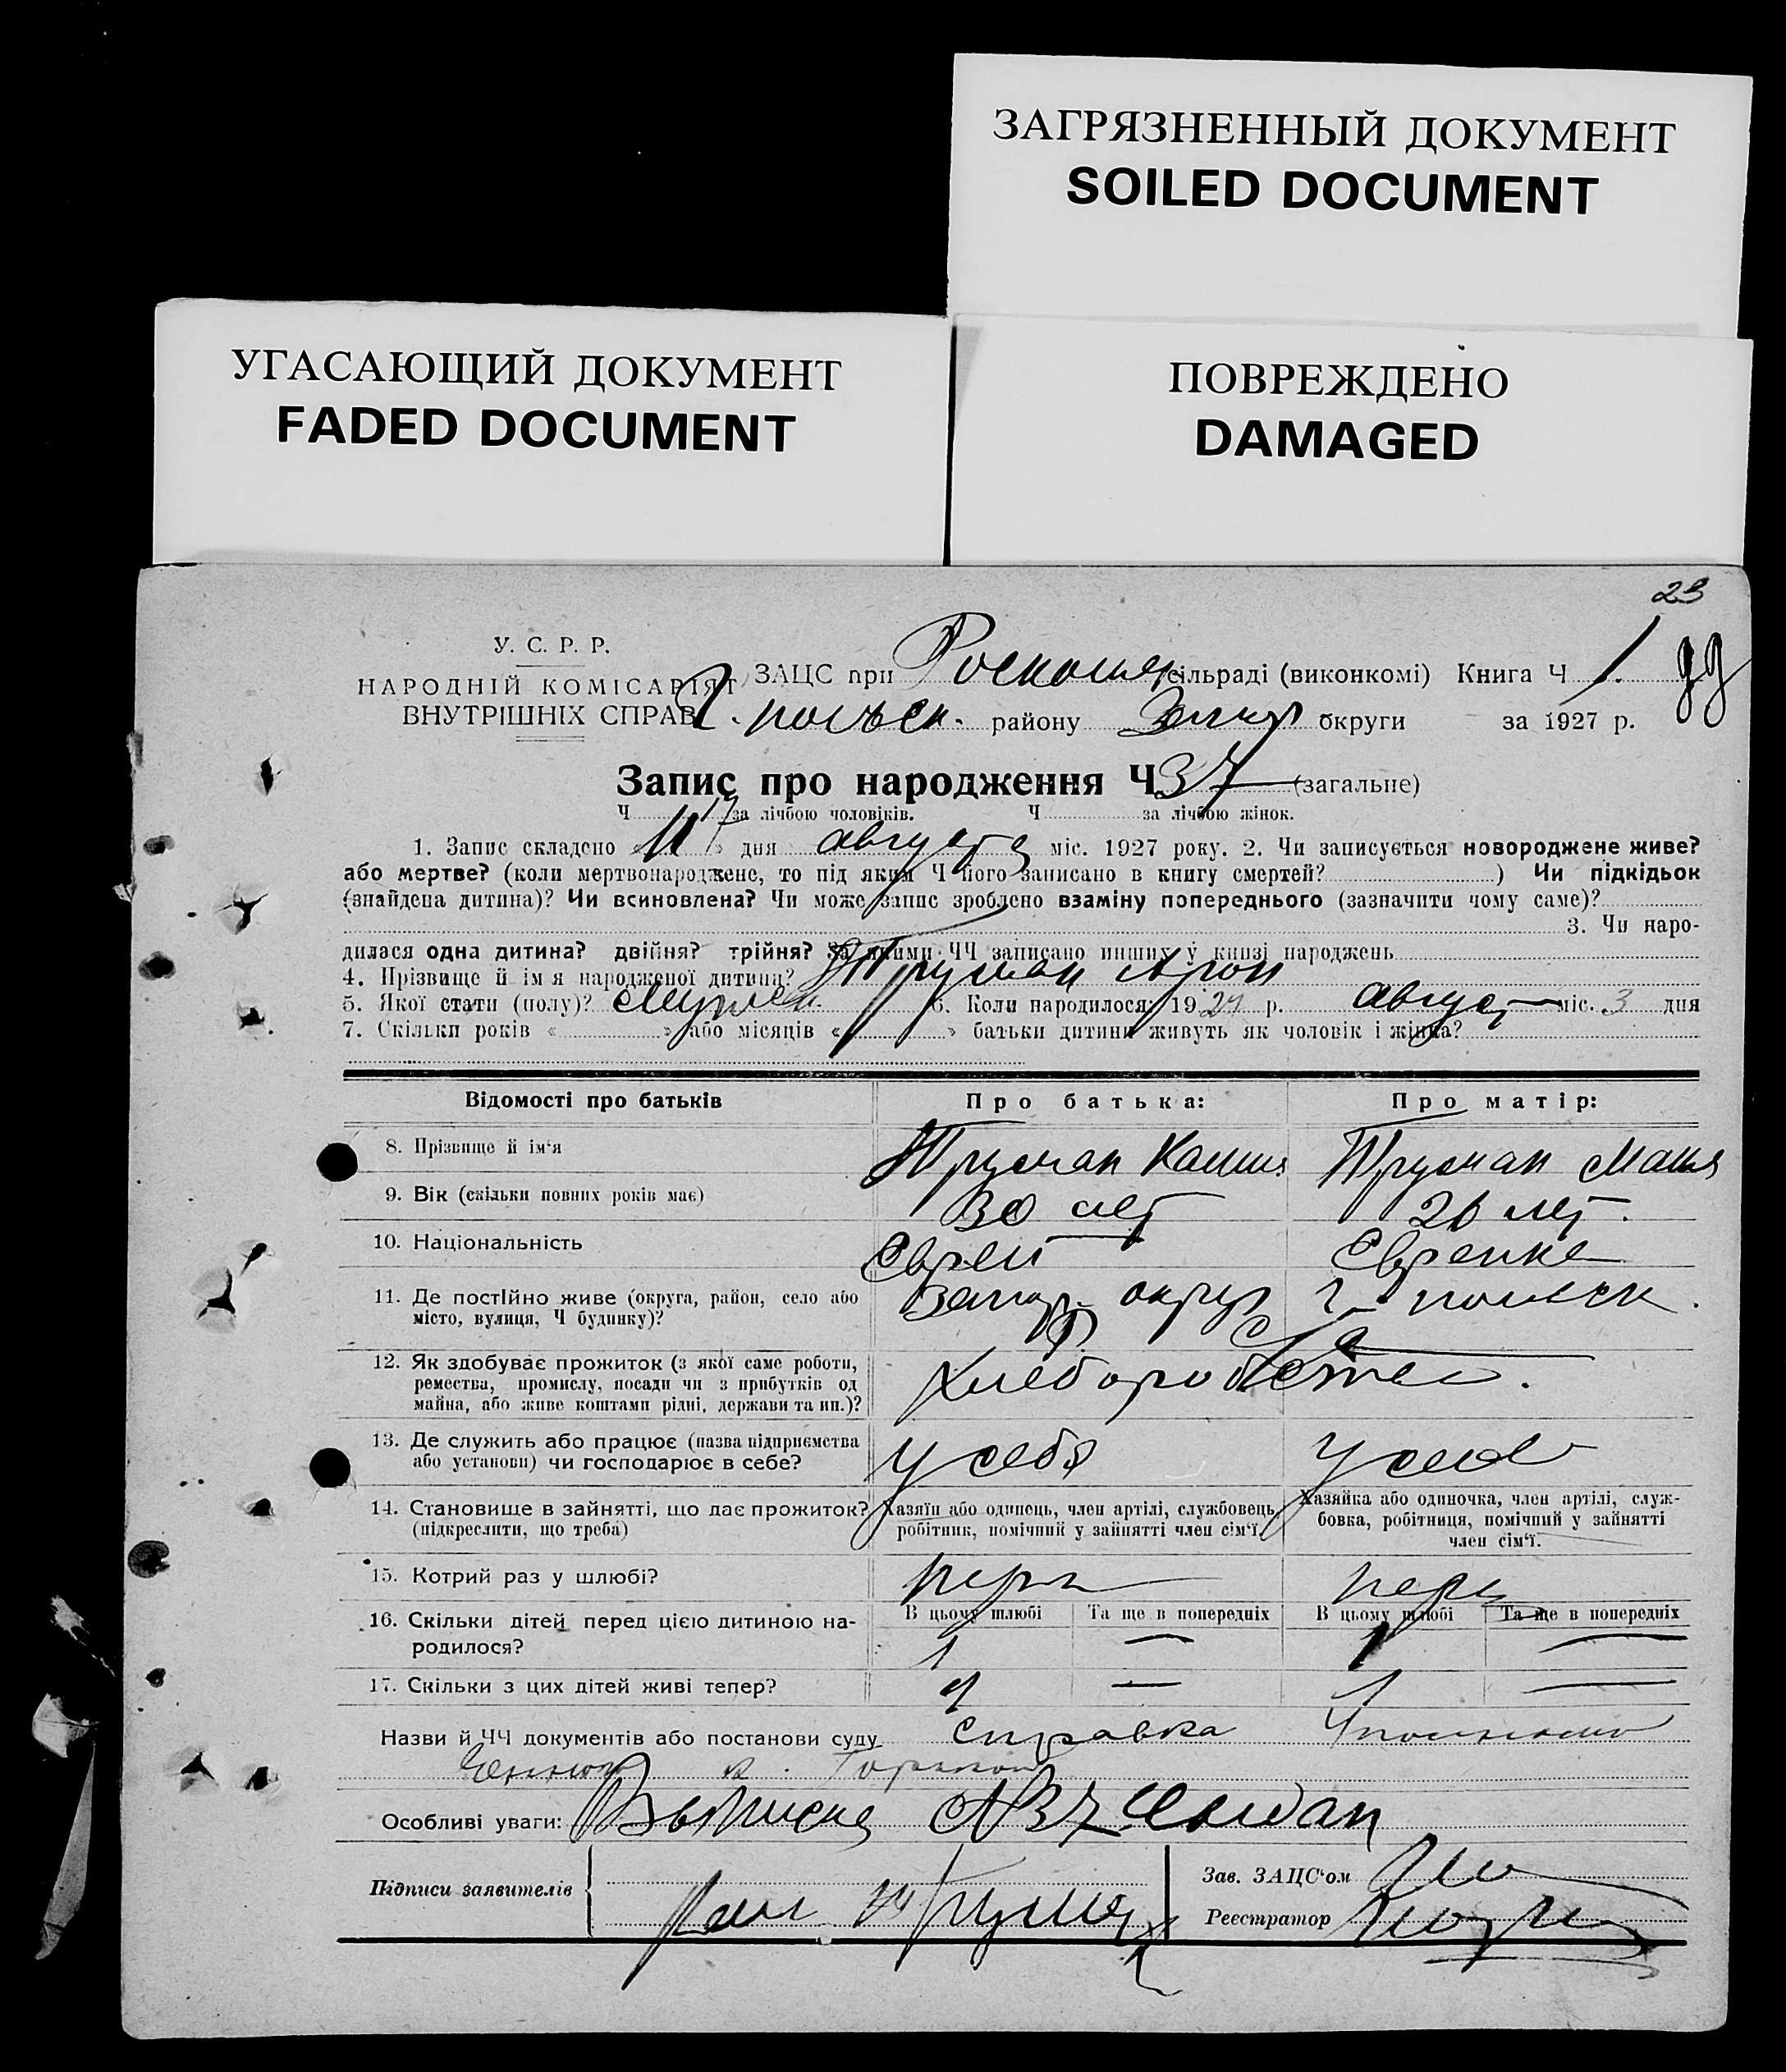 ЗАГРЯЗНЕННЫЙ ДОКУМЕНТ
SOILED DOCUMENT
УГАСАЮЩИЙ ДОКУМЕНТ
FADED DOCUMENT
ПОВРЕЖДЕНО
DAMAGED
23
У. С. Р. Р.
НАРОДНІЙ КОМІСАРІЯТ
ВНУТРІШНІХ СПРАВ
ЗАЦС при сільраді (виконкомі) Книга Ч 1.
Г. польск. району Запор округи за 1927 р.
Запис про народження Ч 37 (загальне)
Ч 17 за лічбою чоловіків. Ч за лічбою жінок.
1. Запис складено « » дня августа міс. 1927 року. 2. Чи записується новороджене живе?
або мертве? (коли мертвонароджене, то під яким Ч його записано в книгу смертей? ) Чи підкідьок
(знайдена дитина)? Чи всиновлена? Чи може запис зроблено взаміну попереднього (зазначити чому саме)?
3. Чи наро-
дилася одна дитина? двійня? трійня? За якими ЧЧ записано инших у книзі народжень
4. Прізвище й ім'я народженої дитини? Трумап Арон
5. Якої стати (полу)? Мужск. 6. Коли народилося? 1927 р. август міс. 3 дня
7. Скільки років « » або місяців « » батьки дитини живуть як чоловік і жінка?
Відомості про батьків Про батька: Про матір:
8. Прізвище й ім'я Труман Труман Маня
9. Вік (скільки повних років має) 30 лет 26 лет.
10. Національність Еврей Еврейка
11. Де постійно живе (округа, район, село або
місто, вулиця, Ч будинку)? Запор. округ Г. польск.
12. Як здобуває прожиток (з якої саме роботи,
ремества, промислу, посади чи з прибутків од
майна, або живе коштами рідні, держави та ин.)?
13. Де служить або працює (назва підприємства
або установи) чи господарює в себе? У себя У себя
14. Становище в зайнятті, що дає прожиток?
(підкреслити, що треба)
Хазяїн або одинець, член артілі, службовець,
робітник, помічний у зайнятті член сім'ї.
Хазяйка або одиночка, член артілі, служ-
бовка, робітниця, помічний у зайнятті
член сім'ї.
15. Котрий раз у шлюбі? перв перв
16. Скільки дітей перед цією дитиною на-
родилося?
В цьому шлюбі Та ще в попередніх В цьому шлюбі Та ще в попередніх
1 — 1 —
17. Скільки з цих дітей живі тепер? 1 — 1 —
Назви й ЧЧ документів або постанови суду справка
Особливі уваги: Выписка №37 выдан
Підписи заявителів
Зав. ЗАЦС'ом
Реєстратор